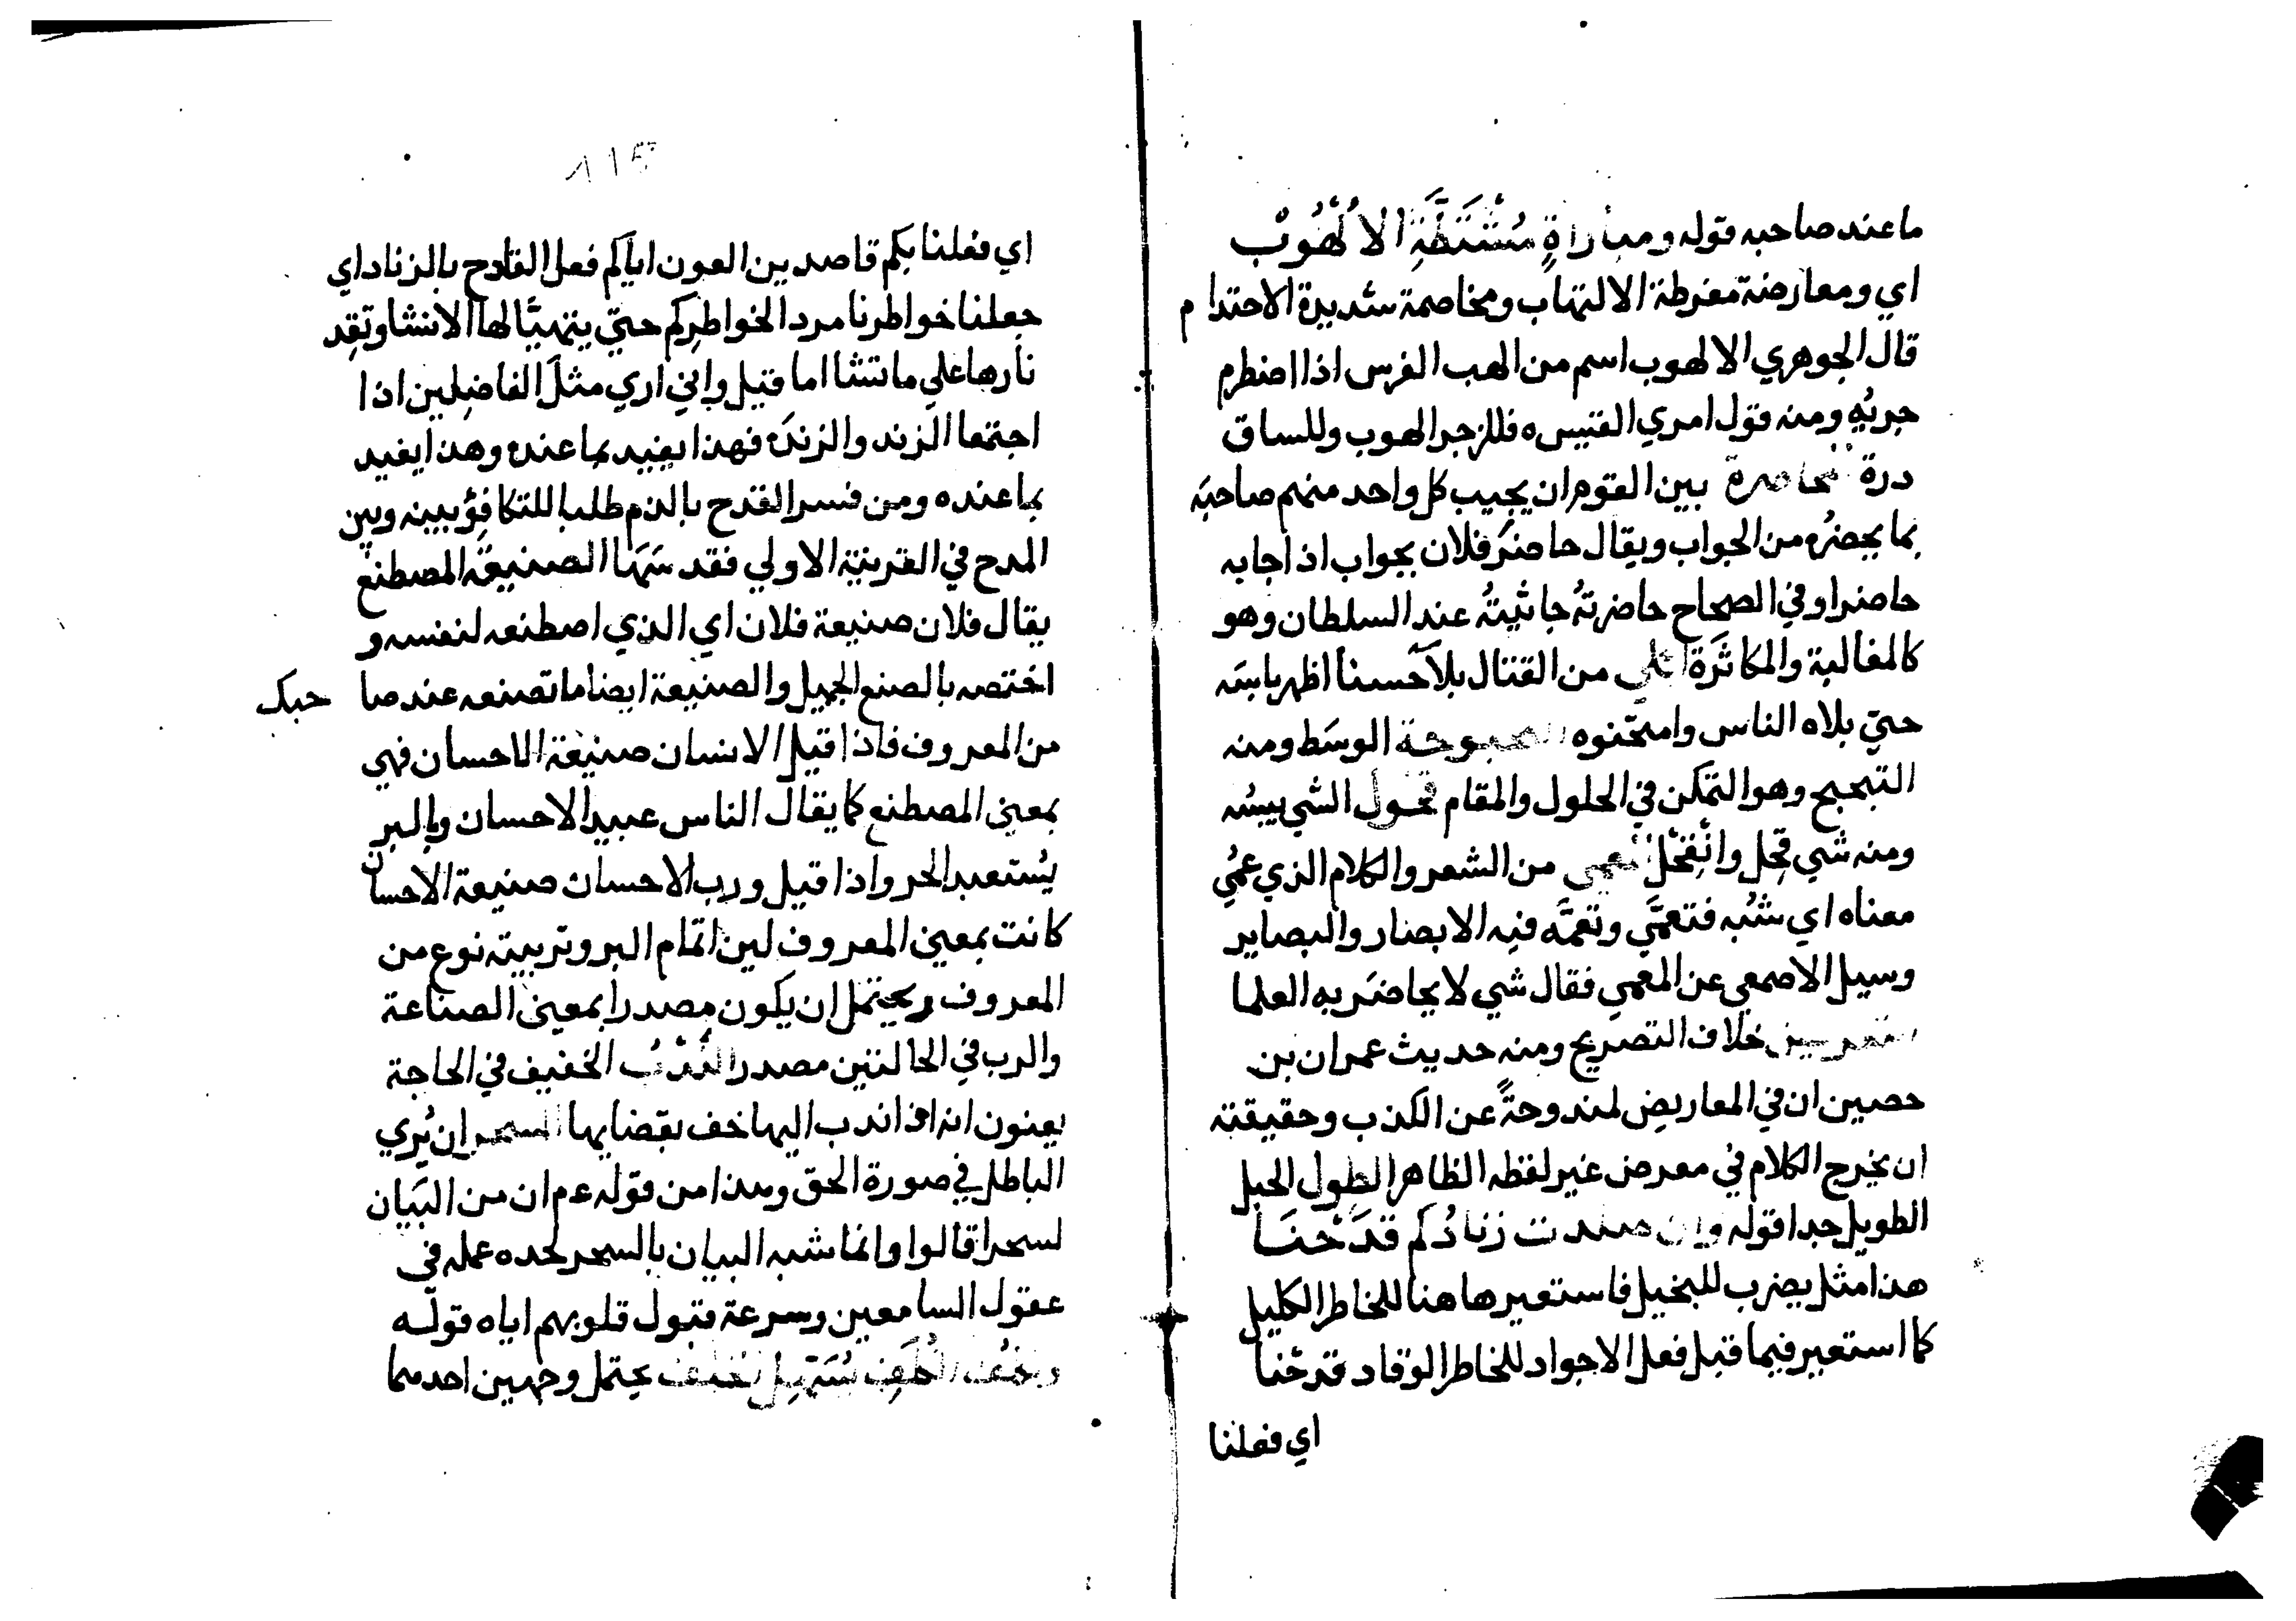 ما عند صاحبه قوله ومباراةٍ مُشْتَطَّةِ الالْهُوبْ
اي ومعارضة مفرطة الالتهاب ومخاصمة شديدة الاحتدام
قال الجوهري الالهوب اسم من الهب الفرس اذا اضطرم
جريُه ومنه قول امري القيس ه فللزجر الهوب وللساق
درة المحاضرة بين القوم ان يجيب كل واحد منهم صاحبَه
بما يحضرُه من الجواب ويقال حاضَرَ فلان بجواب اذ اجابه
حاضرا وفي الصحاح حاضرتهُ جاثيتُه عند السلطان وهو
كالمغالبة والمكاثَرَة ابلي من القتال بلآ حسنا اظهر باسَه
حتي بلاه الناس وامتحنوه البحبوحة الوسَط ومنه
التبحبح وهو التمكن في الحلول والمقام قحول الشي يبسُه
ومنه شي قَحِل وانْقَحْل المعمي من الشعر والكلام الذي عمُي
معناه اي شُبه فتعمَّي وتعمَّه فيه الابصار والبصاير
وسيل الاصمعي عن المعمي فقال شي لا يحاضَر به العلما
التعريض خلاف التصريح ومنه حديث عمران بن
حصين ان في المعاريض لمندوحةً عن الكذب وحقيقته
ان يخرج الكلام في معرض غير لفظه الظاهر الطول الحبل
الطويل جدا قوله وان صلدت زنادُكم قَدَحْنَا
هذا مثل يضرب للبخيل فاستعيرها هنا للخاطر الكليل
كما استعير فيما قبل فعل الاجواد للخاطر الوقاد قدحْنا
اي فعلنا
اي فعلنا بكم قاصدين العون اياكم فعل القادح بالزناد اي
جعلنا خواطرنا مردا لخواطركم حتي يتهيَّا لها الانشا وتقِد
نارها علي ما تشا اما قيل واني اري مثلَ الفاضِلين اذا
اجتمعا الزند والزندَه فهذا يفيد بما عنده وهذا يفيد
بما عنده ومن فسر القدح بالذم طلبا للتكافؤ بينه وبين
المدح في القرينة الاولي فقد سَهَا الصنيعَة المصطنع
يقال فلان صنيعة فلان اي الذي اصطنعه لنفسه و
اختصه بالصنع الجميل والصنيعة ايضا ما تصنعه عند صا حبك
من المعروف فاذا قيل الانسان صنيعَة الاحسان فهي
بمعني المصطنع كما يقال الناس عبيد الاحسان وبالبر
يُستعبد الحر واذا قيل ورب الاحسان صنيعة الاحسان
كانت بمعني المعروف لين اتمام البر وتربيته نوع من
المعروف ويحتمل ان يكون مصدرا بمعني الصناعة
والرب في الحالتين مصدر النَّدْبُ الخفيف في الحاجة
يعنون انه اذا ندب اليها خف بقضايها السحر ان يُري
الباطل في صورة الحق وهذا من قوله عم ان من البَيان
لسحرا قالوا وانما شبه البيان بالسحر لحده عمله في
عقول السامعين وسرعة قبول قلوبهم اياه قوله
يحتمل وجهين احدهما